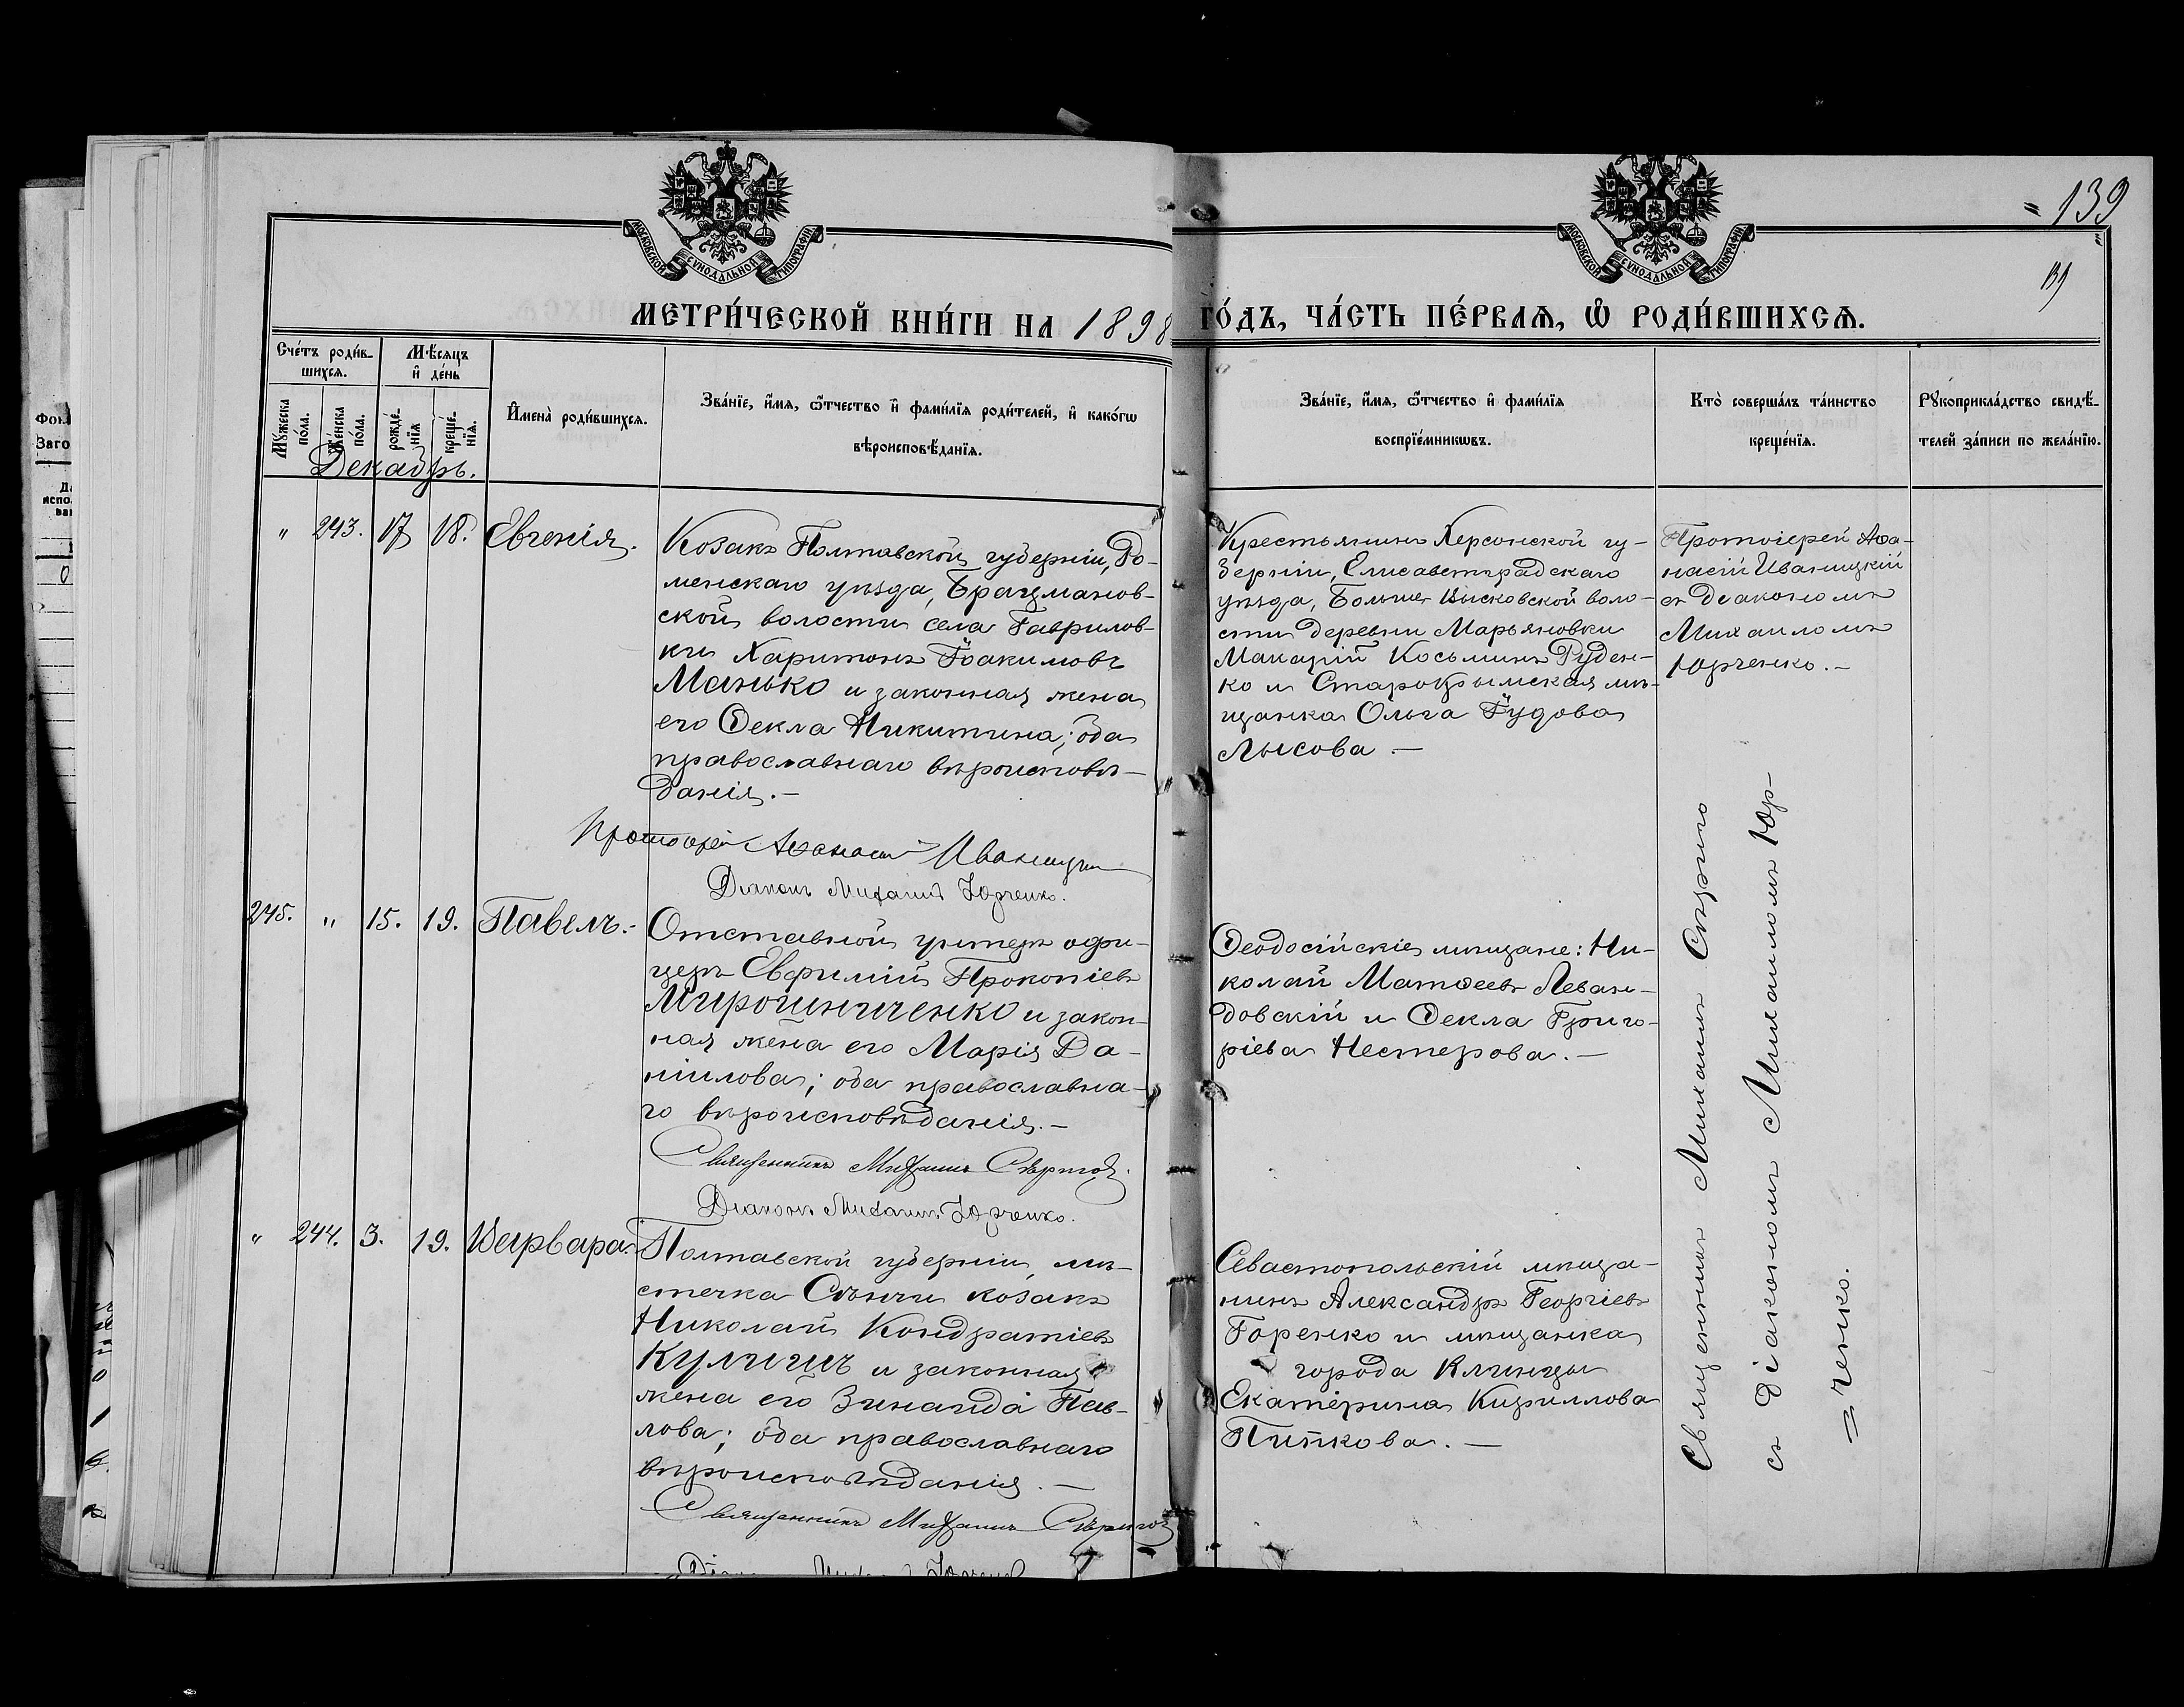 = 139
139
МОСКОВСКОЙ СѴНОДАЛЬНОЙ ТИПОГРАФІИ
МОСКОВСКОЙ СѴНОДАЛЬНОЙ ТИПОГРАФІИ
МЕТРИ́ЧЕСКОЙ КНИ́ГИ НА 1898 ГО́ДЪ, ЧА́СТЬ ПЕ́РВАѦ, Ѽ РОДИ́ВШИХСѦ.
Сче́тъ роди́в-
шихсѧ.
Мѣ́сѧцъ
и҆ де́нь
Мꙋ́жеска
по́ла.
Же́нска
по́ла.
рожде́-
нїѧ
креще́-
нїѧ.
И҆мена̀ роди́вшихсѧ.
Зва́нїе, и҆́мѧ, ѻ҆́тчество и҆ фами́лїѧ роди́телей, и҆ како́гѡ
вѣроисповѣ́данїѧ.
Зва́нїе, и҆́мѧ, ѻ҆́тчество и҆ фами́лїѧ
воспрїе́мникѡвъ.
Кто̀ соверша́лъ та́инство
креще́нїѧ.
Рꙋкоприкла́дство свидѣ́-
телей за́писи по жела́нїю.
Декабрь.
" 243. 17 18. Евгенія.
Козакъ Полтавской губерніи, Ро-
менскаго уѣзда,
ской волости села Гаврилов-
ки Харитонъ Іоакимовъ
Манько и законная жена
его Ѳекла Никитина; оба
православнаго вѣроисповѣ-
данія.—
Протоіерей Аѳанасій Иваницкій
Діаконъ Михаилъ Юрченко.
Крестьянинъ Херсонской гу-
берніи, Елисаветградскаго
уѣзда, Больше Высковской воло-
сти деревни Марьяновки
Макарій Косьминъ Руден-
ко и Старокрымская мѣ-
щанка Ольга
Лысова —
Протоіерей Аѳа-
насій Иваницкій
съ діакономъ
Михаиломъ
Юрченко.—
245. " 15. 19. Павелъ.-
Отставной унтеръ офи-
церъ Евфимій Прокопіевъ
Мирошниченко и закон-
ная жена его Марія Да-
ніилова; оба православна-
го вѣроисповѣданія.—
Священникъ Михаилъ
Діаконъ Михаилъ Юрченко.
Ѳеодосійскіе мѣщане: Ни-
колай Матѳеевъ Леван-
довскій и Ѳекла Григо-
ріева Нестерова.—
" 244. 3. 19. Варвара.
Полтавской губерніи, мѣ-
стечка Сѣнчи козакъ
Николай Кондратіевъ
Куличъ и законная
жена его Зинаида Пав-
лова; оба православнаго
вѣроисповѣданія.—
Священникъ Михаилъ
Севастопольскій мѣща-
нинъ Александръ Георгіевъ
Горенко и мѣщанка
города Клинцы
Екатерина Кириллова
Пипкова.—
Священникъ Михаилъ
съ діакономъ Михаиломъ Юр-
=ченко.